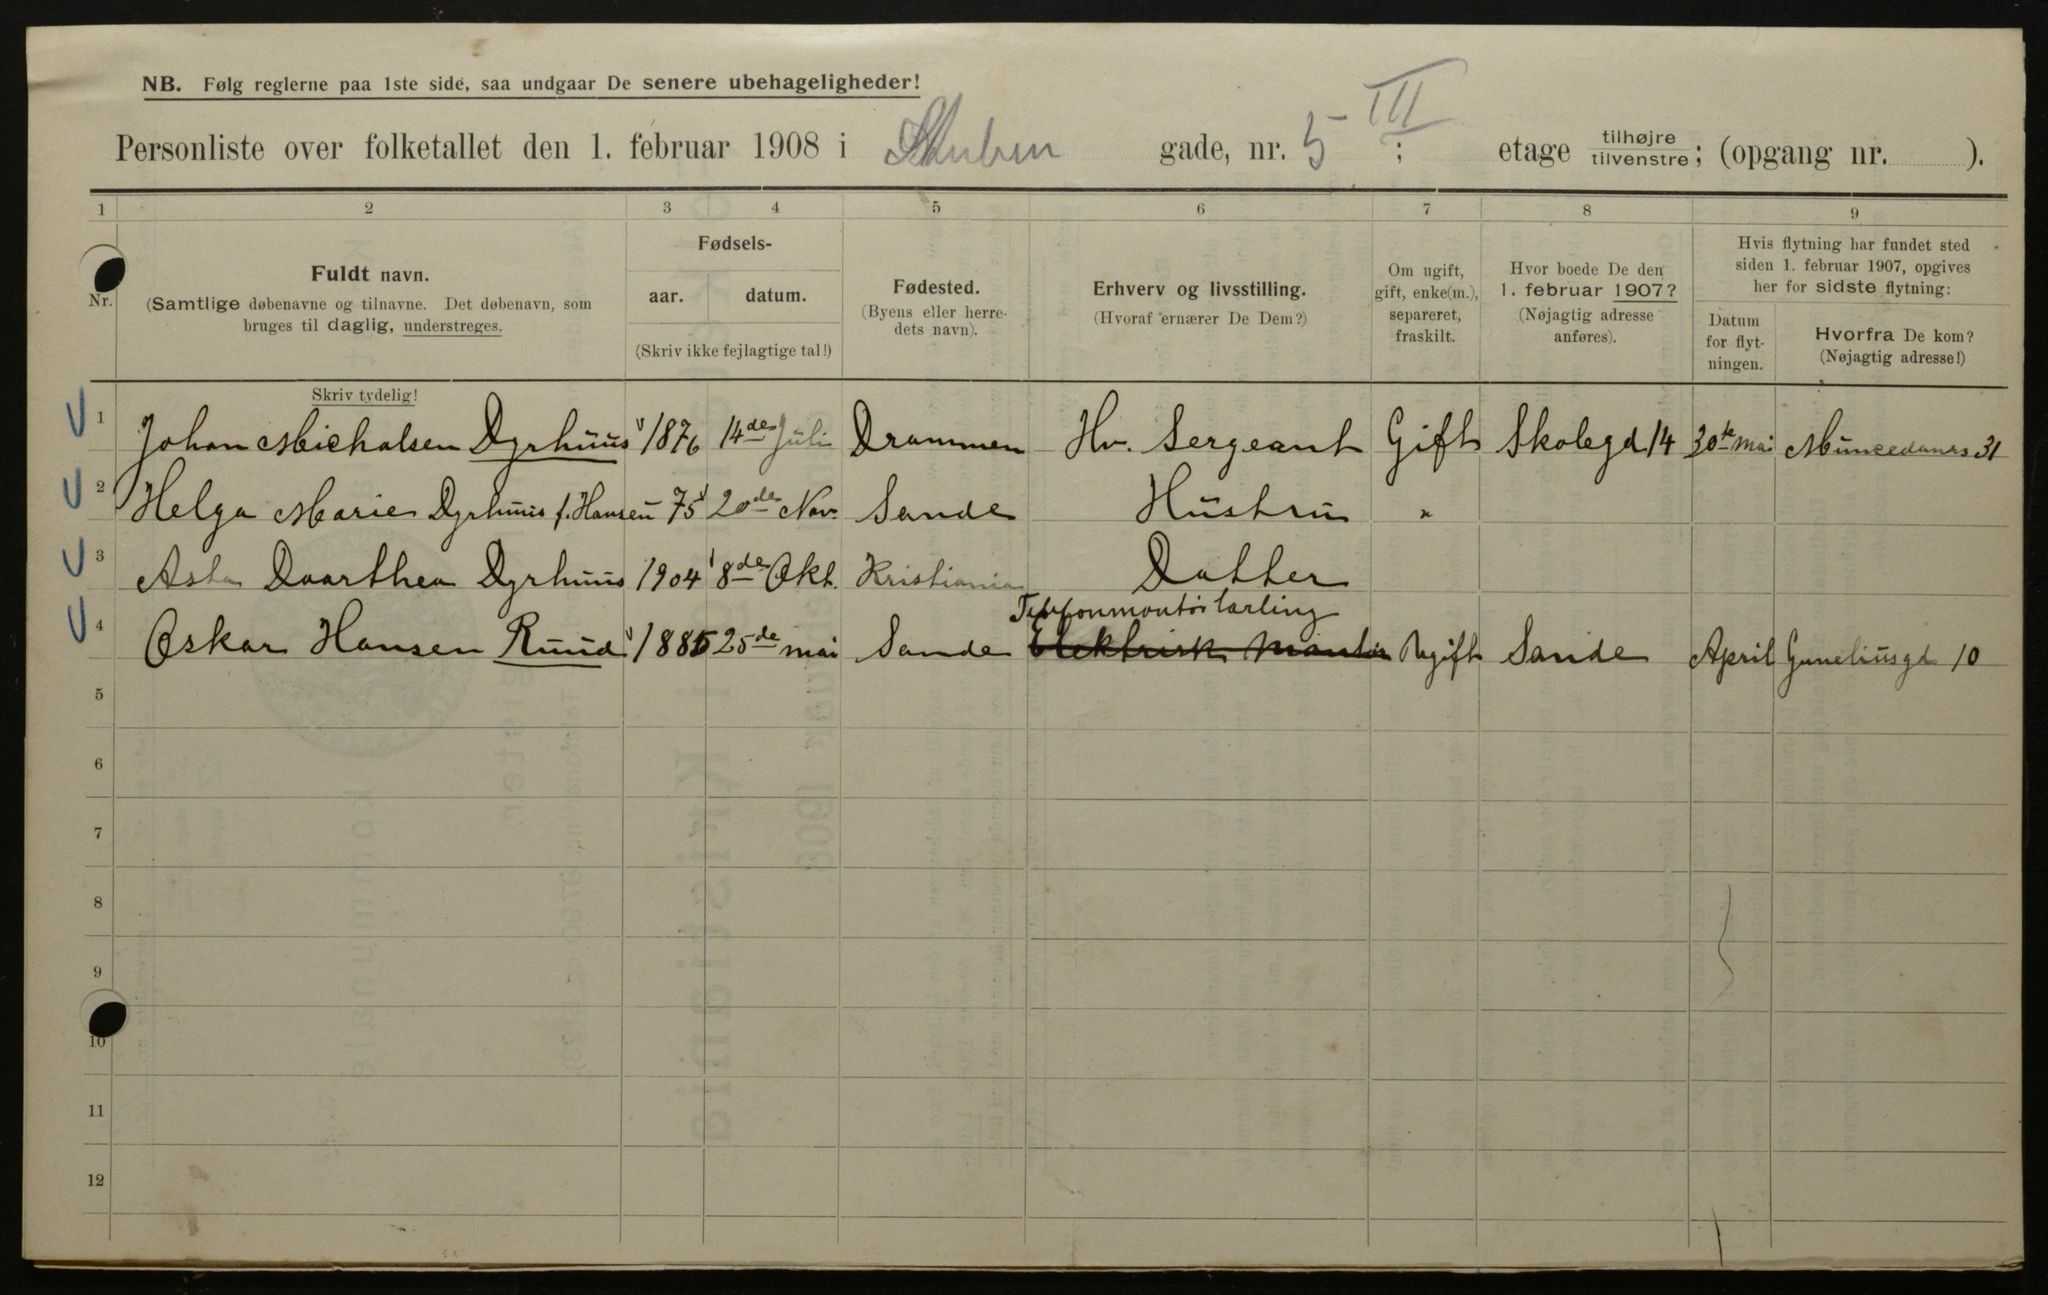 NB. Følg reglerne paa 1ste side, saa undgaar De senere ubehageligheder!
Personliste over folketallet den 1. februar 1908 i gade, nr. 5 III ; etage tilhøjre tilvenstre; (opgang nr. ).
1 2 3 4 5 6 7 8 9
Nr.
Fuldt navn.
(Samtlige døbenavne og tilnavne. Det døbenavn, som
bruges til daglig, understreges.
Skriv tydelig!
Fødsels-
aar. datum.
(Skriv ikke fejlagtige tal!)
Fødested.
(Byens eller herre-
dets navn).
Erhverv og livsstilling.
(Hvoraf ernærer De Dem?)
Om ugift,
gift, enke(m.),
separeret,
fraskilt.
Hvor boede De den
1. februar 1907?
(Nøjagtig adresse
anføres).
Hvis flytning har fundet sted
siden 1. februar 1907, opgives
her for sidste flytning:
Datum
for flyt-
ningen.
Hvorfra De kom?
(Nøjagtig adresse!)
1 Johan Micholsen Dyrhuus 1876 14de Juli Drammen Hv. Sergeant Gift Skolegd 14 30te mai 31
2 Helga Marie Dyrhuus f. Hansen 75 20de Nov. Sande Hustru "
3 Asta Doorthea Dyrhuus 1904 8de Okt. Kristiania Datter
Telefonmontørlærling
4 Oskar Hansen Ruud 1885 25de mai Sande Elektrisk Montør Ugift Sande April 10
5
6
7
8
9
10
11
12